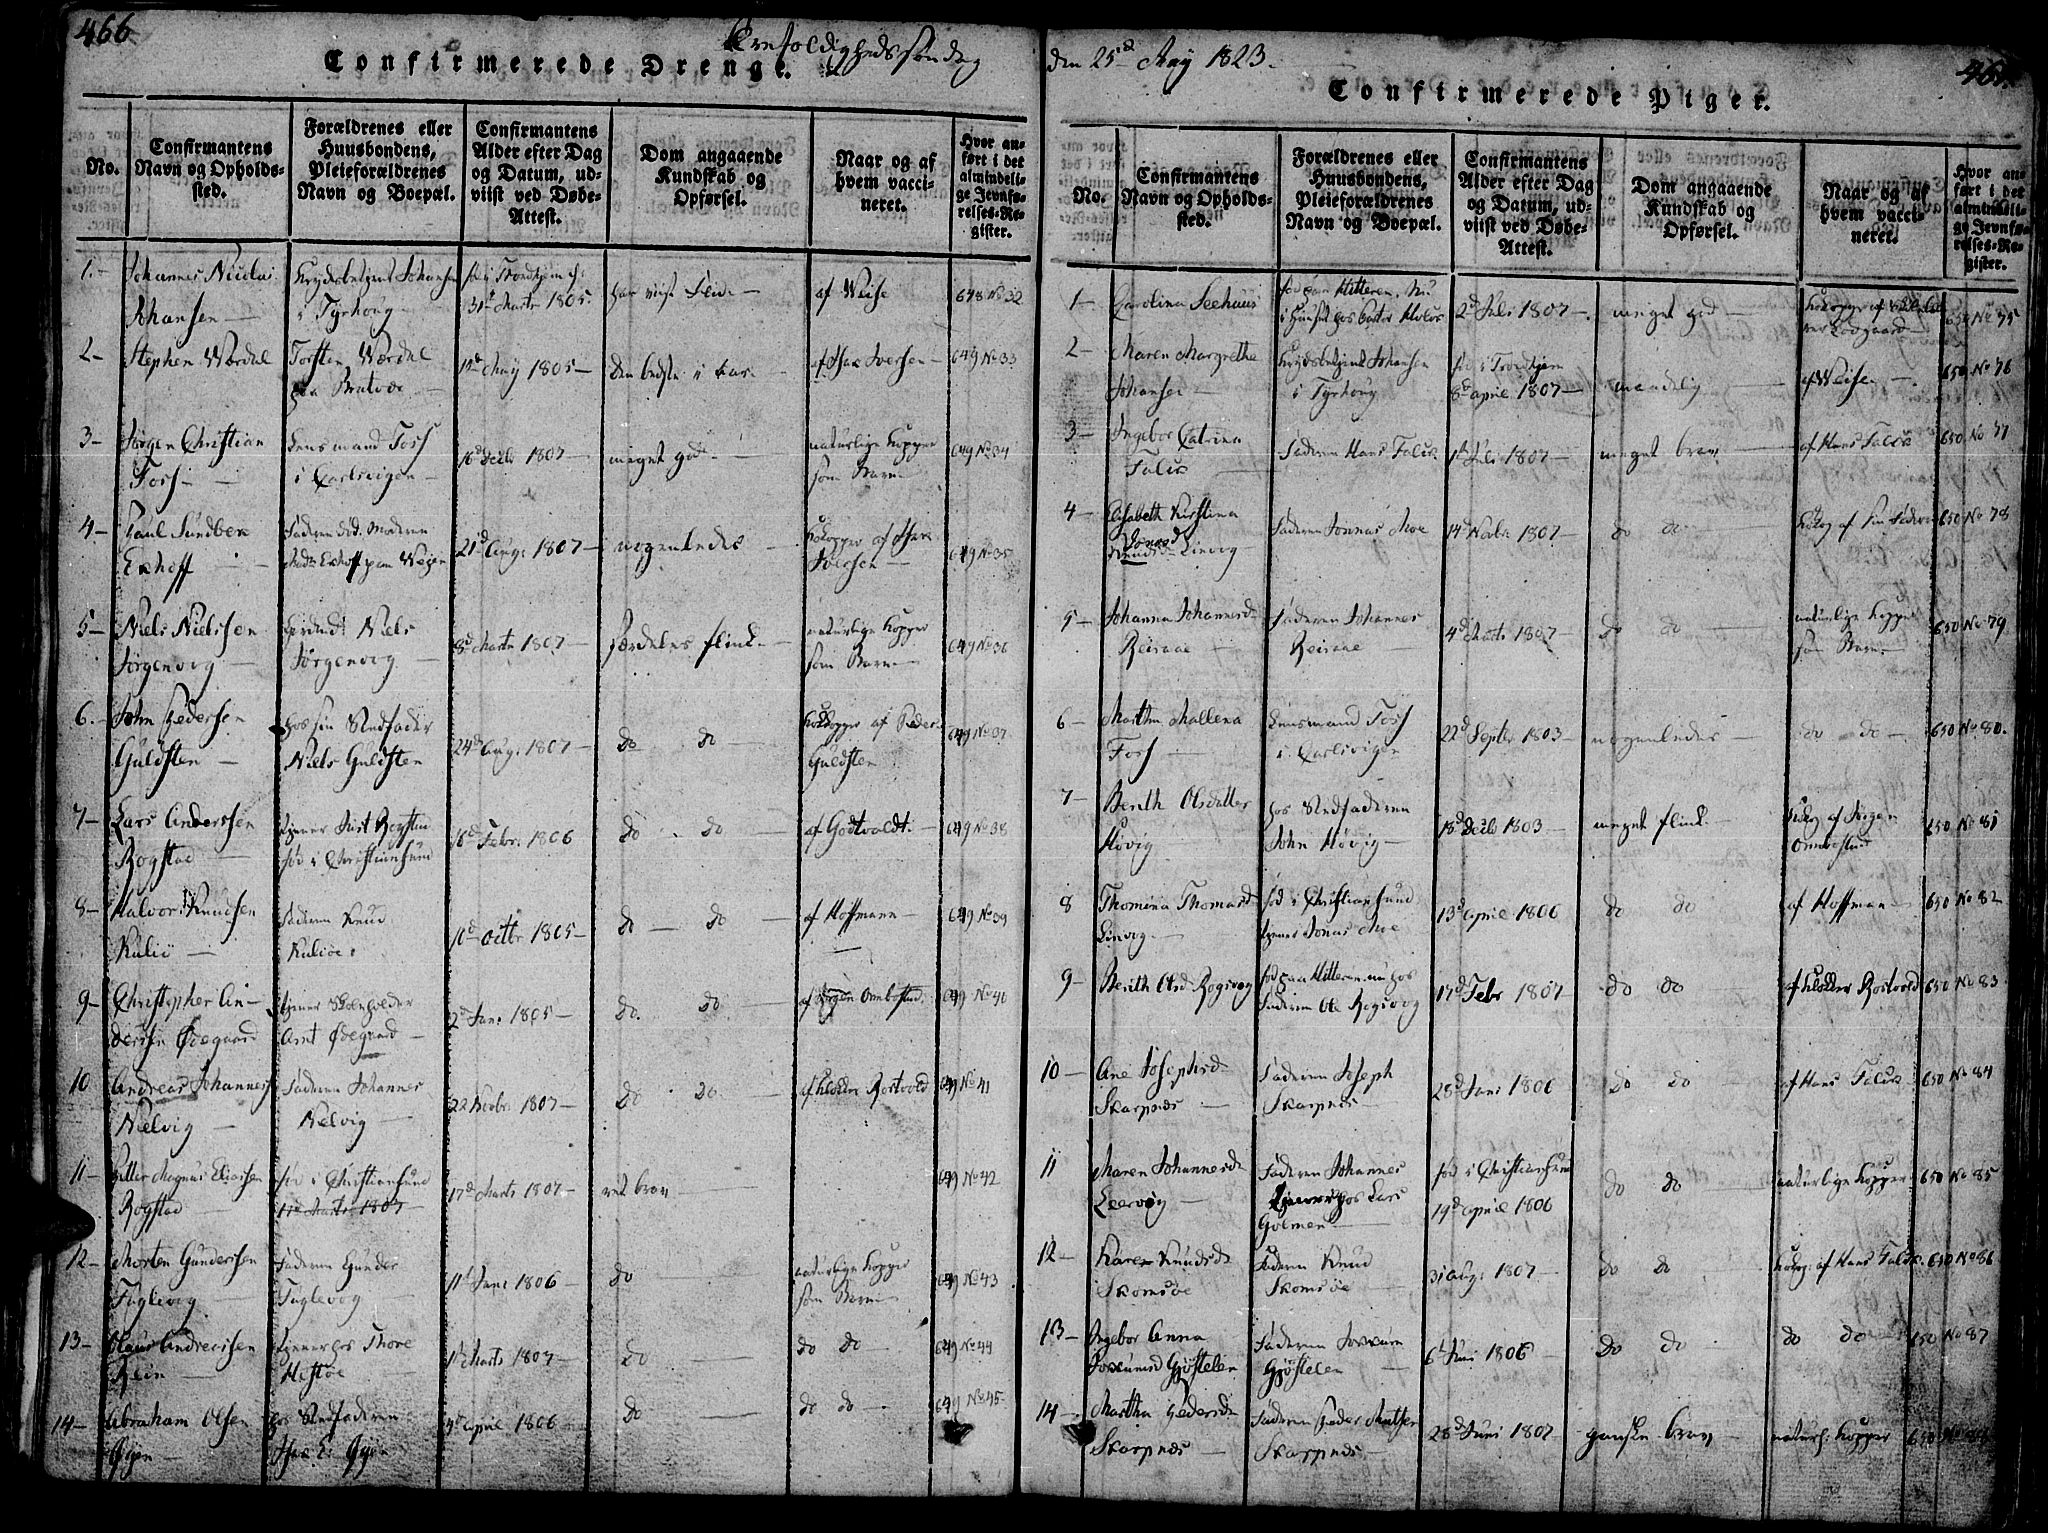 466
Trefoldighedssøndag
Confirmerede Drenge.
No.
Confirmantens Navn og Opholds-
sted.
Forældrenes eller
Huusbondens,
Pleieforældrenes
Navn og Boepæl.
Confirmantens
Alder efter Dag
og Datum, ud-
viist ved Døbe-
Attest.
Dom angaaende
Kundskab og
Opførsel.
Naar og af
hvem vacci-
neret.
Hvor an-
ført i det
almindeli-
ge Jevnfø-
relses-Re-
gister.
1.- Johannes Nicolai
Johansen
Krydsbetjent Johansen
i Tyrhoug
fød i Trondhjem
31 Marts 1805.
har viist Flid
af Weise
648 No 32
2- Stephen Wordal
Torsten Wordal
paa Bratvær
1d May 1805
den bedste i
af Isak Iversen
649 No 33
3- Jørgen Christian
Foss
Lensmand Foss
i Carlsvigen
16d Decb 1807
meget god
naturlige Kopper
som Barn
649 No 34
4- Paul Sundber
Exhoff
Faderen død. Moderen
Exhoff paa Vejen
21d Aug: 1807
nogenledes
Kokopper af Isak
Iversen
649 No 35
5- Niels Nielssen
Jørgenvog
Niels
Jørgenvog
8d Marts 1807
særdeles flink
naturlige Kopper
som Barn
649 No 36
6.- John Pedersen
Guldsten
hos sin Stedfader
Niels Guldsten
24d Aug: 1807
do do
Kokopper af Peder
Guldsten
649 No 37
7- Lars Anderssen
Rogstad
tjener Rogstad
fød i Christiansund
16d Febr: 1806
do do
af Godtvaldt
649 No 38
8- Halvor Knudsen
Kuliø
Faderen Knud
Kuliøe
10d Octbr 1805
do do
af Hoffmann
649 No 39
9- Christopher An-
dersen Ødegaard
tjener Skoeholder
Arnt Ødegaard
2d Jan: 1805
do. do.
af Jørgen Ombostad.
649 No 40
10 Andreas Johannes
Nelvig
Faderen Johannes
Nelvig
22 Novbr 1807
do do.
af Klokker Rostvold
649 No 41
11- Petter Magnus Eliassen
Rogstad
fød i Christiansund
17d Marts 1807
17d Marts 1807
ret brav
649 No 42
12- Morten Gundersen
Fuglevog
Faderen Gunder
Fuglevog
11d Jani 1806
do
naturlige Kopper
som Barn
649 No 43
13- Andreassen
Rein
tjener hos Thore
Mestøe
1d Marts 1807
do
do do
649 No 44
14- Abraham Olsen
Øyen
hos Stedfaderen
Isak E: Øyen
9d april 1806
do
do do
649 No 45
den 25d May 1823.
467.
Confirmerede Piger.
No.
Confirmantens
Navn og Opholds-
sted.
Forældrenes eller
Huusbondens,
Pleieforældrenes
Navn og Boepæl.
Confirmantens
Alder efter Dag
og Datum, ud-
viist ved Døbe-
Attest.
Dom angaaende
Kundskab og
Opførsel.
Naar og af
hvem vacci-
neret.
Hvor an-
ført i det
almindeli-
ge Jevnfø-
relses-Re-
gister.
1- Carolina Seehuus
fød paa Hitteren. Nu
i Huuset hos Pastor
2d Juli 1807
meget god
Kokopper af
650 No 75
2- Maren Margrethe
Johansen
Krydsbetjent Johansen
i Tyrhoug
fød i Trondhjem
8d april 1807
maadelig
af Weisen
650 No 76
3- Ingebor Catrina
Falck
Faderen Hans Falck
1d Juli 1807
meget brav
af Hans Falck
650 No 77
4- Elisabeth Kirstina
Jonasd
Linvog
Faderen Jonnas Moe
14d Novbr 1807
do do
Kokop af sin Fader
650 No 78
5- Johanna Johannesd
Reiraae
Faderen Johannes
Reiraae
4d Marts 1807
do do
naturlige Kopper
som Barn
650 No 79
6- Marthe Mallena
Foss
Lensmand Foss
i Carlsvigen
22d Septbr 1803
nogenledes
do do
650 No 80.
7- Berith Olsdatter
Høvig
hos Stedfaderen
John Høvig
18d Decb 1803
meget flink
Kokop af Jørgen
Ombostad
650 No 81
8 Thomina Thomasd
Linvog
fød i Christiansund
tjener Jonas Moe
13d april 1806
do do
af Hoffman
650 No 82
9- Berith Olsd Rogsvog
fød paa Hitteren nu hos
Faderen Ole Rogsvog
17d Febr 1807
do do
af Klokker Rostvold
650 No 83
10- Ane Josephsd
Skarpnæs
Faderen Joseph
Skarpnæs
28d Juni 1806
do do
af Hans Falck
650 No 84
11 Maren Johannesd
Leervog
Faderen Johannes
tjener hos Lars
Golmen
fød i Christiansund
19d april 1806
do do
naturlige Kopper
650 No 85
12- Karen Knudsd
Skomsøe
Faderen Knud
Skomsøe
31 Aug: 1807
do do
Kokop: af Hans Falck
650 No 86
13- Ingebor Anna
Gjøstelen
Faderen
Gjøstelen
6d Juni 1806
do do
do do
650 No 87
14- Martha Pedersd
Skarpnæs
Faderen Peder
Skarpnæs
28d Juni 1807
ganske brav
naturl: Kopper
650 No 88